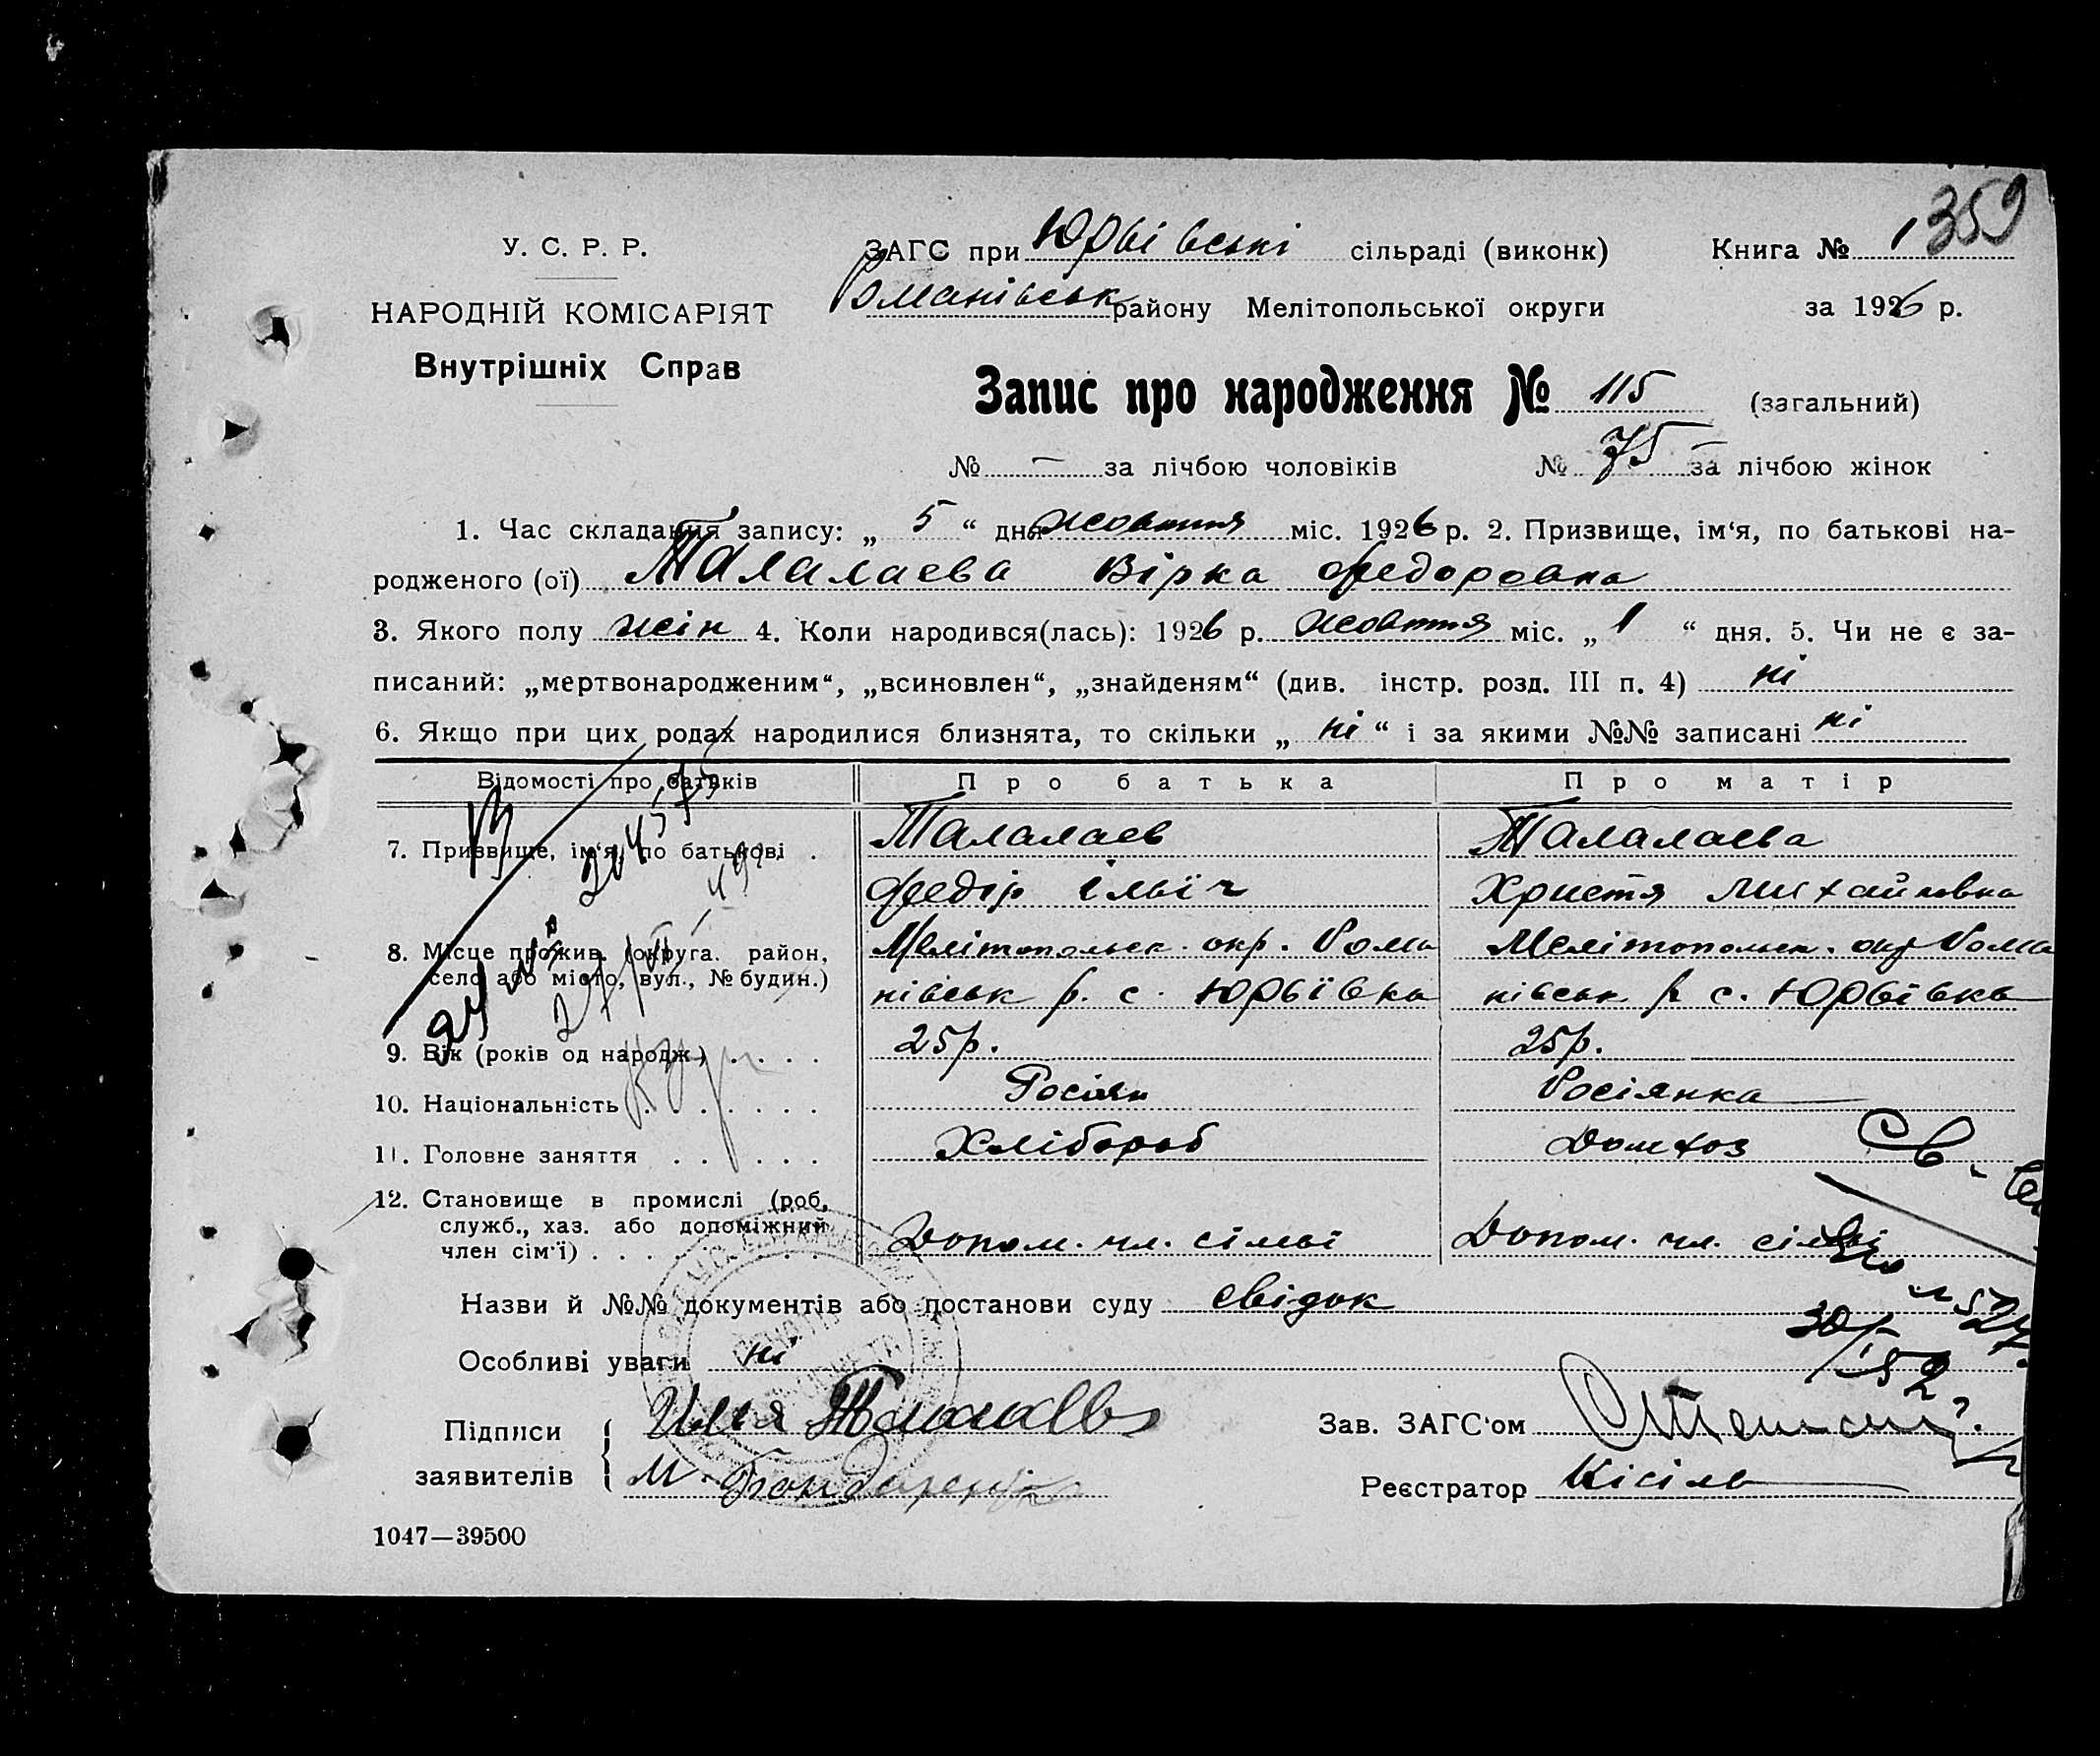 359
У. С. Р. Р.
ЗАГС при Юрьївські сільраді (виконк) Книга № 1
НАРОДНІЙ КОМІСАРІЯТ
Романівськ району Мелітопольської округи за 1926 р.
Внутрішніх Справ
Запис про народження № 115 (загальний)
№ — за лічбою чоловіків № 75 за лічбою жінок
1. Час складання запису: „ 5 “ дня жовтня міс. 1926 р. 2. Призвище, ім‘я, по батькові на-
родженого (ої) Талалаєва Вірка Федоровна
3. Якого полу жін 4. Коли народився(лась): 1926 р. жовтня міс. „ 1 “ дня. 5. Чи не є за-
писаний: „мертвонародженим“, „всиновлен“, „знайденям“ (див. інстр. розд. III п. 4) ні
6. Якщо при цих родах народилися близнята, то скільки „ ні “ і за якими №№ записані ні
Відомості про батьків Про батька Про матір
7. Призвище, ім‘я, по батькові . Талалаев Талалаєва
Федір Ільїч Христя Михайловна
8. Місце прожив. (округа. район, Мелітопольск. окр. Рома Мелітопольск. окр Рома
село або місто, вул., № будин.) нівськ р. с. Юрьївка нівськ р с. Юрьївка
9. Вік (років од народж.) . . . . 25р. 25р.
10. Національність . . . . . . Росіян Росіянка
11. Головне заняття . . . . . . Хлібороб Домхоз
12. Становище в промислі (роб,
служб., хаз. або допоміжний
член сім‘ї) . . . . Допом. чл. сімьї Допом. чл. сімьї
Назви й №№ документів або постанови суду свідок
Особливі уваги ні
30/
Підписи Илья Зав. ЗАГС‘ом
заявителів М. Бондаренко Реєстратор Кісіль
1047—39500